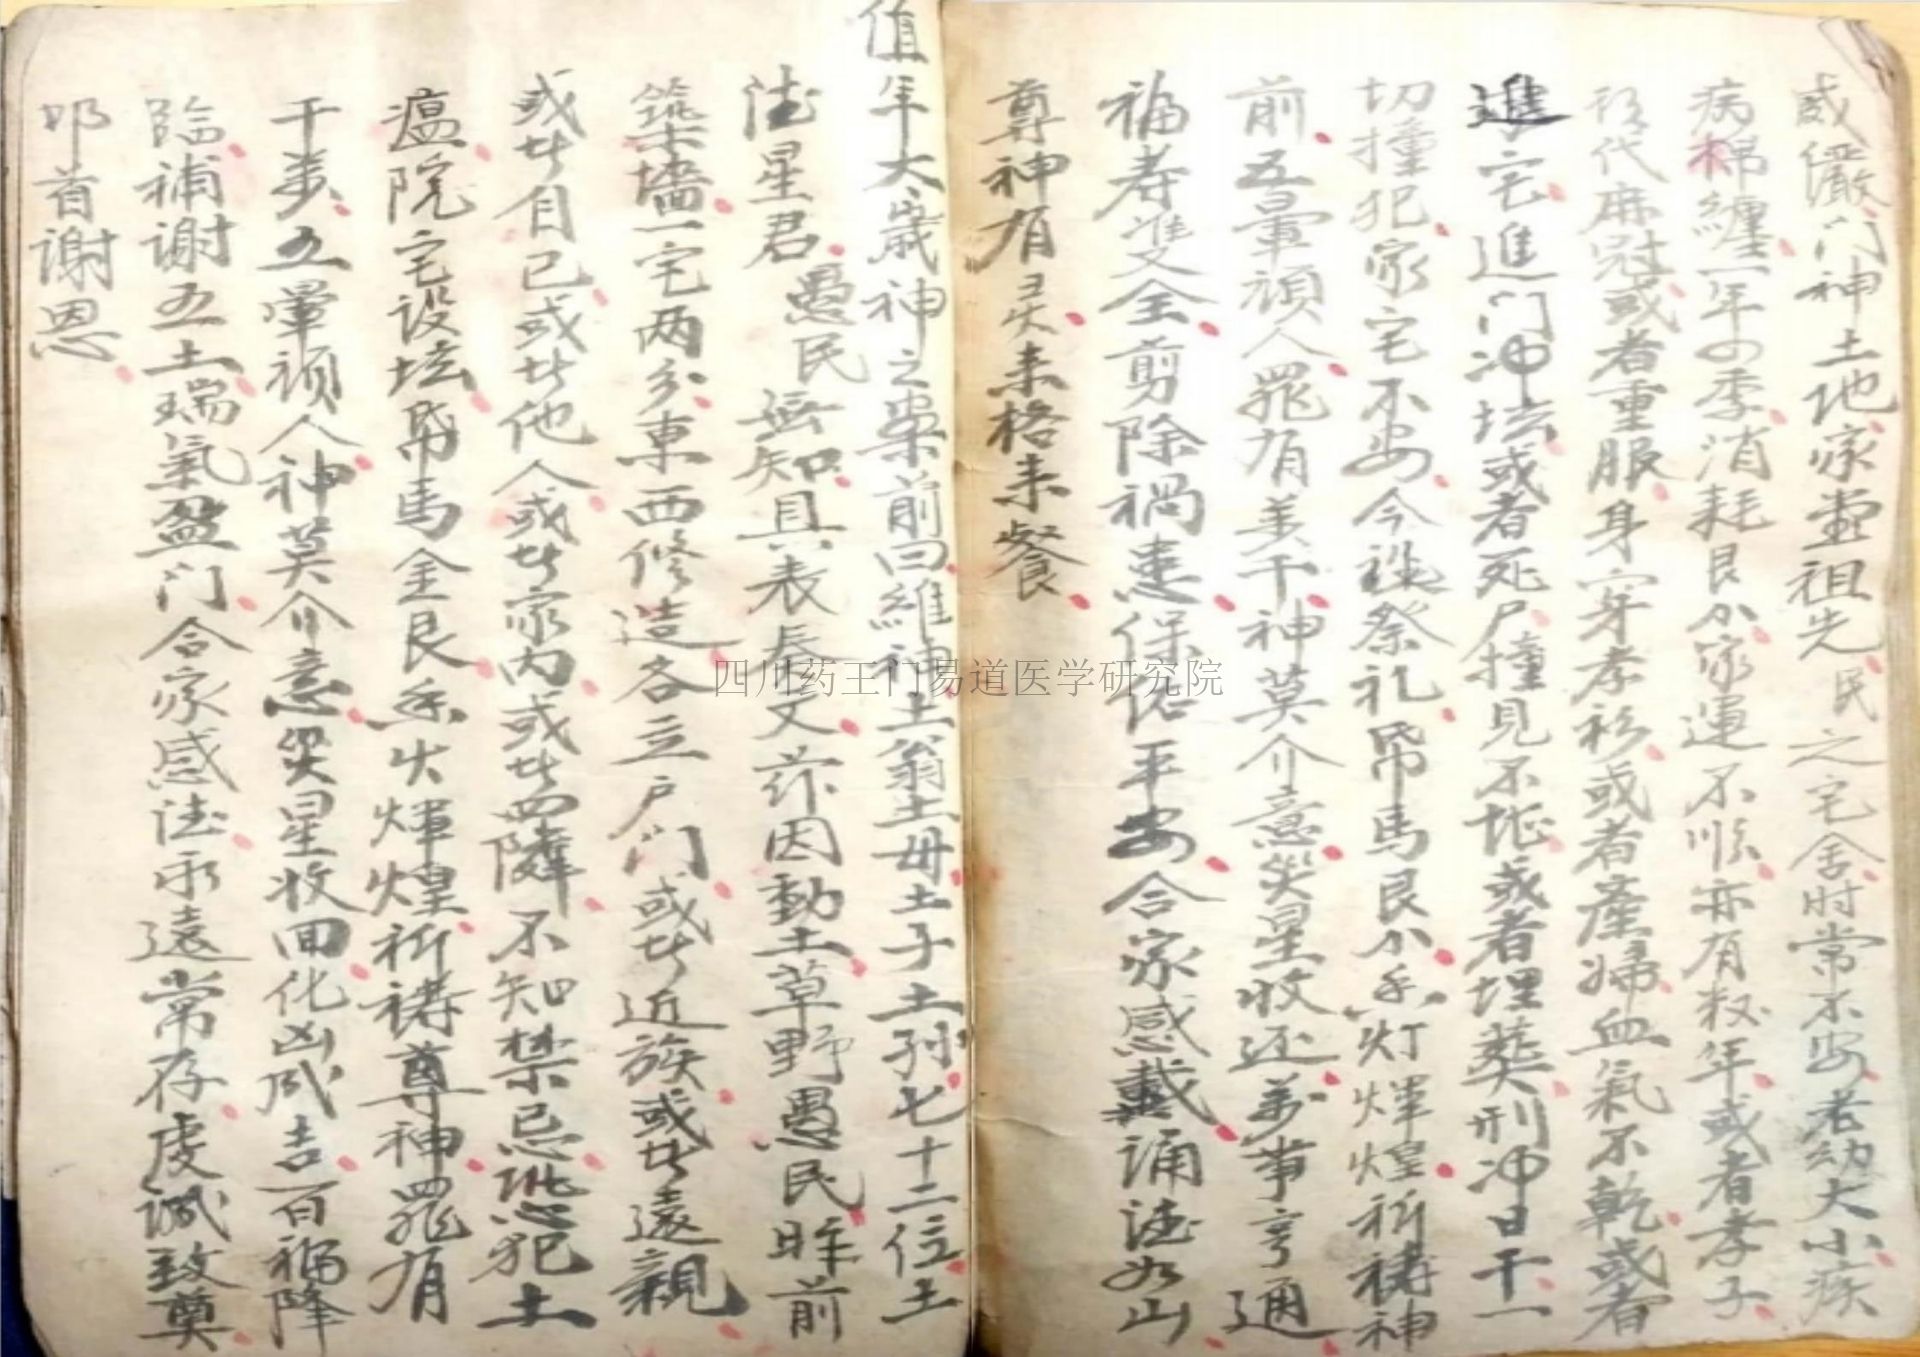 威儼门神土地家堂祖先民之宅舍时常不安老幼大小疾
病棉纏一年四季消耗艮分家運不順亦有杀年或者孝子
代麻冠或者重服身穿孝衫或者產婦血氣不乾或者
進宅進门冲坛或者死尸撞見不堆或者埋葬刑冲日干一
切撞犯家宅不安今祭礼帛馬艮分香灯煇煌祈禱神
前五暈頑人罪有差干神莫介意災星收还萬事亨通
福寿双全剪除禍患保佑平安合家感戴誦德如山
尊神有灵来格来餐
值年大歲神之案前曰維神土翁土母土子土孙七十二位土
德星君愚民無知具表文茲因動土草野愚民昨前
築墻一宅两分東西修造各立户门或是近族或是遠親
或是自己或是他人或是家内或是四隣不知禁忌恐犯土
瘟院宅设坛帛馬金艮香火煇煌祈禱尊神罪有
千萬五暈頑人神莫介意災星收回化凶成吉百福降
臨補谢五土瑞氣盈门合家感德永遠常存虔誠致奠
叩首谢恩
四川药王门易道医学研究院